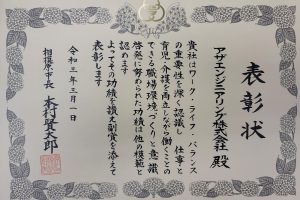 表彰状
アザエンジニアリング株式会社 殿
貴社はワーク・ライフ・バランス
の重要性を深く認識し 仕事と
育児・介護を両立しながら働くことの
できる職場環境づくりと意識
啓発に努められた功績は他の模範と
認めます
よってその功績を讃え副賞を添えて
表彰します
令和三年三月一日
相模原市長 本村賢太郎